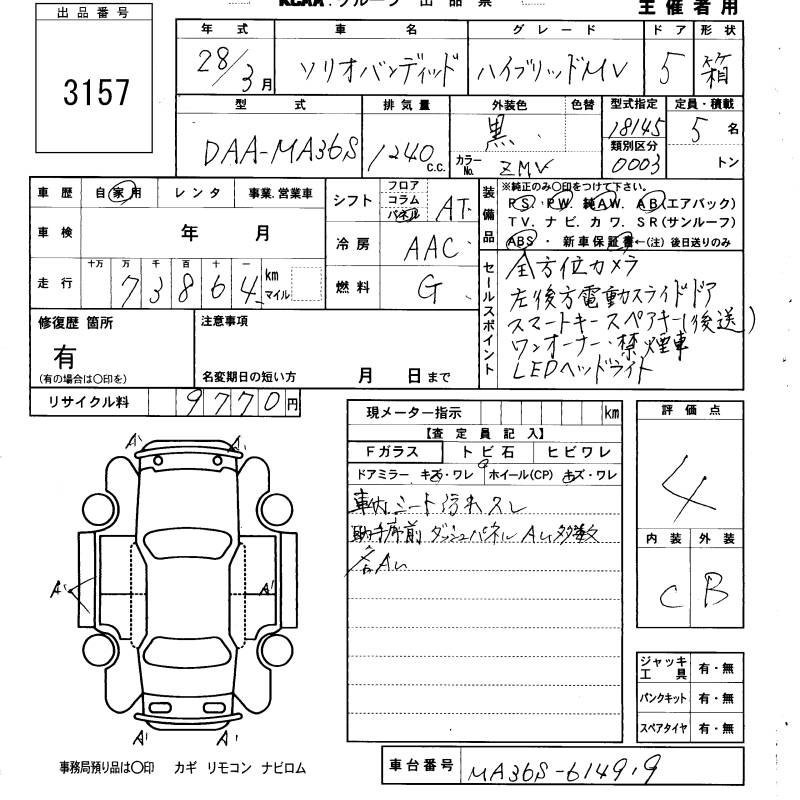 KCAA.グループ 出品票
主催者用
出品番号
3157
年式 車名 グレード ドア 形状
28/3月 ソリオバンディッド ハイブリッドMV 5 箱
型式 排気量 外装色 色替 型式指定 定員・積載
DAA-MA36S 1240 C.C. 黒 18145 5名
類別区分
カラーNo. ZMV 0003 トン
車歴 自家用 レンタ 事業.営業車
車検 年 月
走行 十万 万 千 百 十 一
73864 km マイル
シフト フロア コラム パネル AT
冷房 AAC
燃料 G
装備品
※純正のみ○印をつけて下さい。
PS・PW.純AW.AB(エアバック)
TV.ナビ.カワ.SR(サンルーフ)
ABS・新車保証書←(注)後日送りのみ
セールスポイント
全方位カメラ
左後方電動スライドドア
スマートキースペアキー(後送)
ワンオーナー・禁煙車
LEDヘッドライト
修復歴 箇所
有
(有の場合は○印を)
注意事項
名変期日の短い方 月 日まで
リサイクル料 9770円
現メーター指示 km
【査定員記入】
Fガラス トビ石 ヒビワレ
ドアミラー キズ・ワレ ホイール(CP) キズ・ワレ
車内シート汚れスレ
助手席前ダッシュパネルAい多数
各Aい
評価点
4
内装 外装
C B
A' A'
A' A'
A' A'
ジャッキ工具 有・無
パンクキット 有・無
スペアタイヤ 有・無
事務局預り品は○印 カギ リモコン ナビロム
車台番号 MA36S-614919